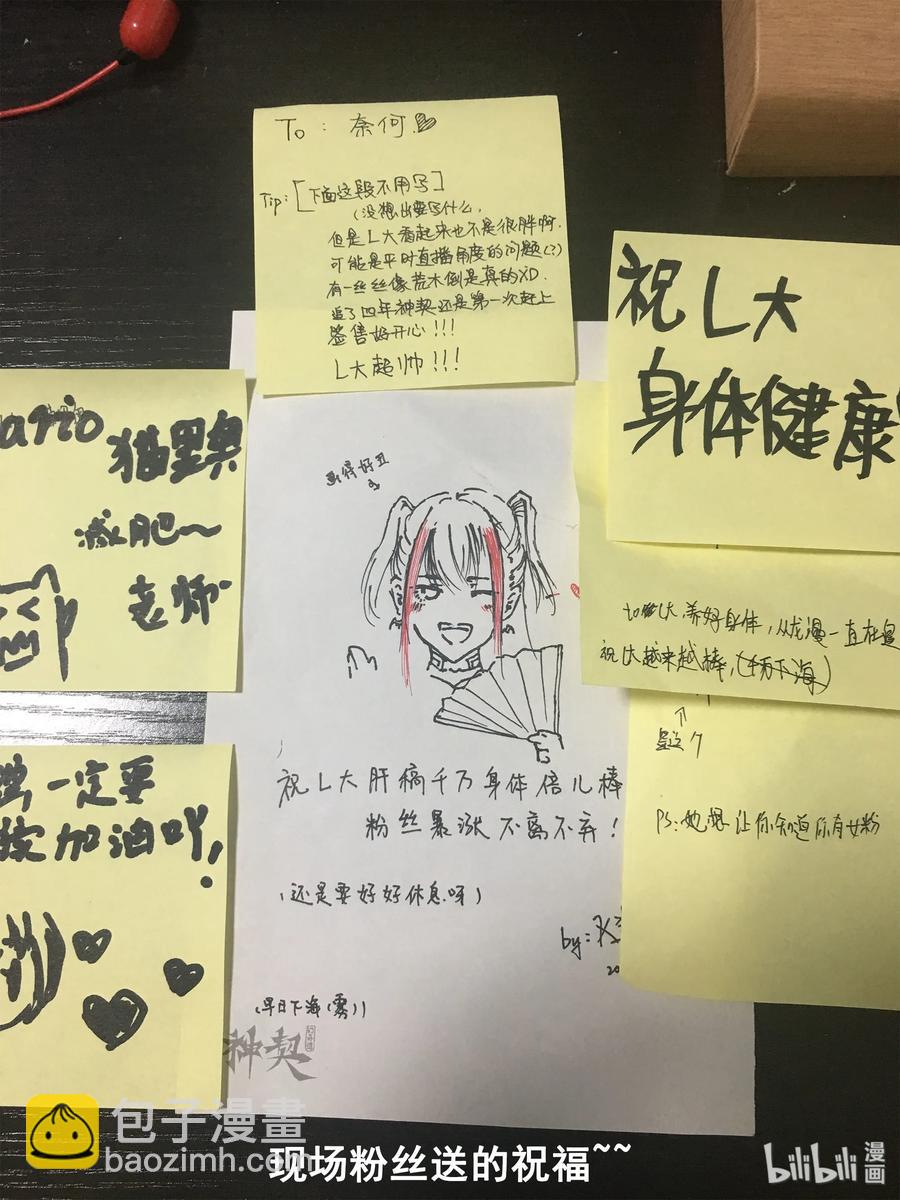 To: 奈何
Tip:[下面这段不用写]
(没想出要写什么,
但是L大看起来也不是很胖啊.
可能是平时直播角度的问题(?)
有一丝丝像荒木倒是真的XD.
追了四年神契还是第一次赶上
签售好开心!!!
L大超帅!!!
祝L大
身体健康
ario
猫里奥
减肥~
老师
画得好丑
养好身体,从龙漫一直在追
祝L大越来越棒,
一定要
加油吖!
祝L大肝稿千万身体倍儿棒
粉丝暴涨不离不弃!
(还是要好好休息呀)
by:
PS:她想让你知道你有女粉
(早日下海(雾))
神契
包子漫畫
baozimh.com
现场粉丝送的祝福~~
bilibili
漫画